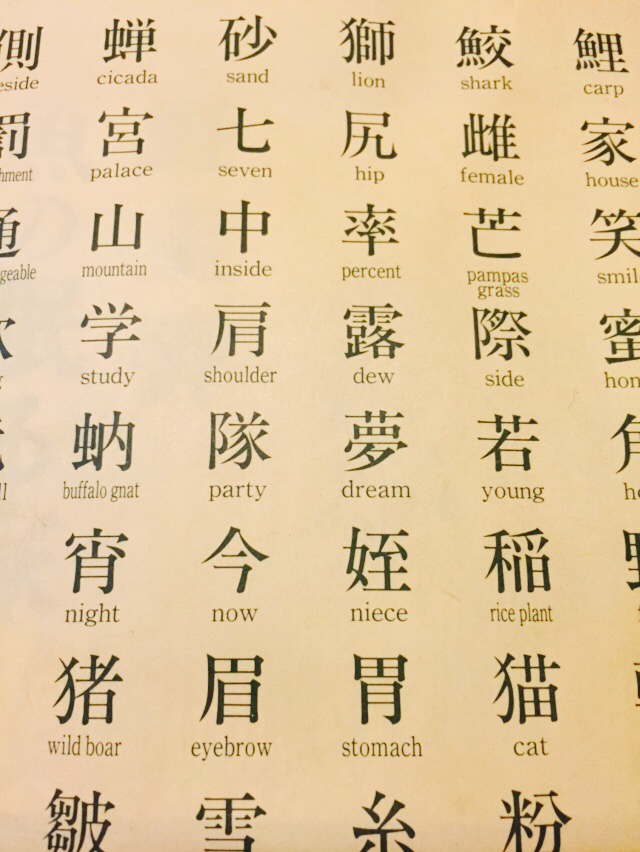 側 蝉 砂 獅 鮫 鯉
eside cicada sand lion shark carp
罰 宮 七 尻 雌 家
hment palace seven hip female house
通 山 中 率 芒 笑
geable mountain inside percent pampas grass smil
学 肩 露 際 蜜
study shoulder dew side hon
蚋 隊 夢 若 角
ll buffalo gnat party dream young ho
宵 今 姪 稲
night now niece rice plant
猪 眉 胃 猫
wild boar eyebrow stomach cat
皺 雪 糸 粉